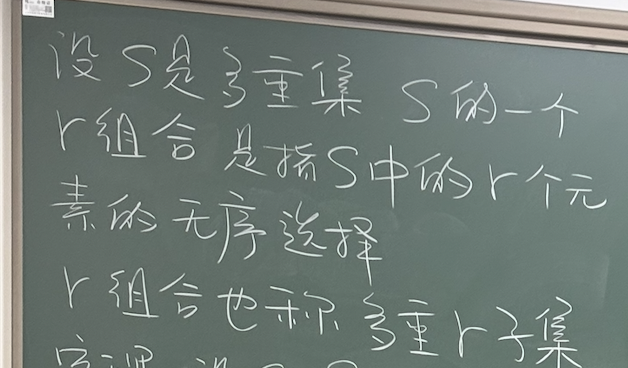 设S是多重集 S的一个
r组合是指S中的r个元
素的无序选择
r组合也称多重r子集